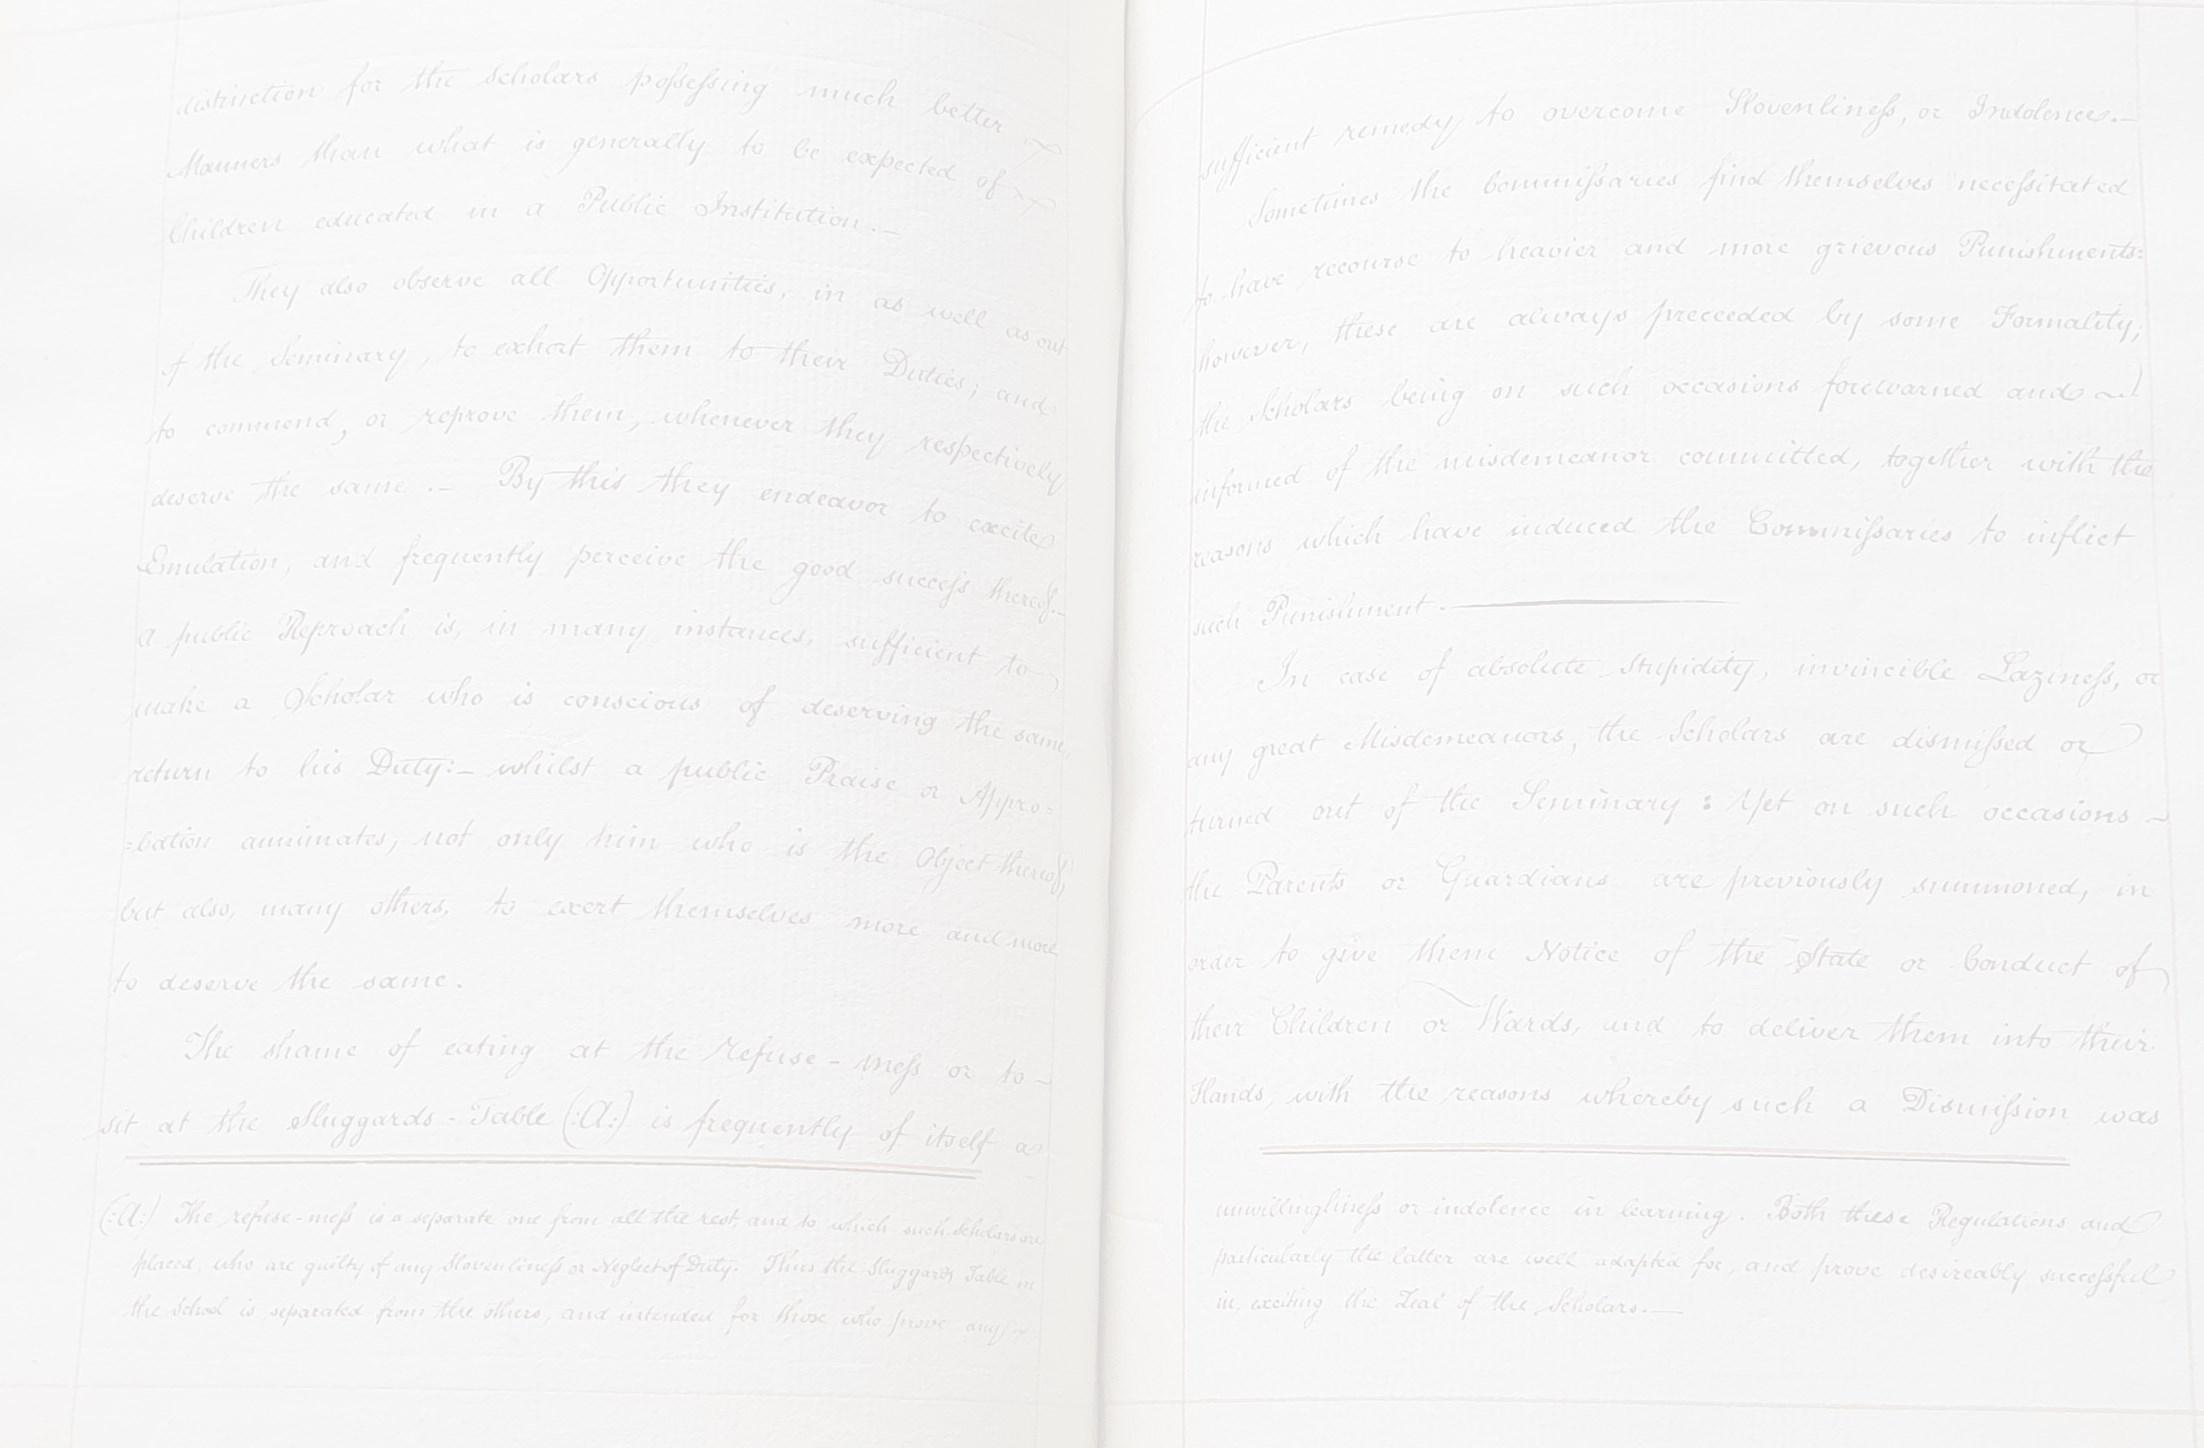 distinction for the Scholars possessing much better
Manners than what is generally to be expected of
Children educated in a Public Institution.—
They also observe all Opportunities, in as well as out
of the Seminary, to exhort them to their Duties; and
to commend, or reprove them, whenever they respectively
deserve the same.— By this they endeavor to excite
Emulation, and frequently perceive the good success thereof.—
a public Reproach is, in many instances, sufficient to
make a Scholar who is conscious of deserving the same,
return to his Duty:— whilst a public Praise or Appro=
=bation annimates, not only him who is the Object thereof,
but also, many others, to exert themselves more and more
to deserve the same.
The shame of eating at the refuse-mess or to—
sit at the Sluggards-Table (:A:) is frequently of itself a
(:A:) The refuse-mess is a separate one from all the rest, and to which such Scholars are
placed, who are guilty of any Slovenliness or Neglect of Duty. Thus the Sluggards Table in
the School is separated from the others, and intended for those who prove any
sufficient remedy to overcome Slovenliness, or Indolence.—
Sometimes the Commissaries find themselves necessitated
to have recourse to heavier and more grievous Punishments:
however, these are always preceeded by some Formality,
the Scholars being on such occasions forewarned and
informed of the misdemeanor committed, together with the
reasons which have induced the Commissaries to inflict
such Punishment.—
In case of absolute Stupidity, invincible Laziness, or
any great Misdemeanors, the Scholars are dismissed or
turned out of the Seminary: Yet on such occasions—
the Parents or Guardians are previously summoned, in
order to give them Notice of the State or Conduct of
their Children or Wards, and to deliver them into their
Hands, with the reasons whereby such a Dismission was
unwillingliness or indolence in learning. Both these Regulations and
particularly the latter are well adapted for, and prove desireably successful
in, exciting the Zeal of the Scholars.—